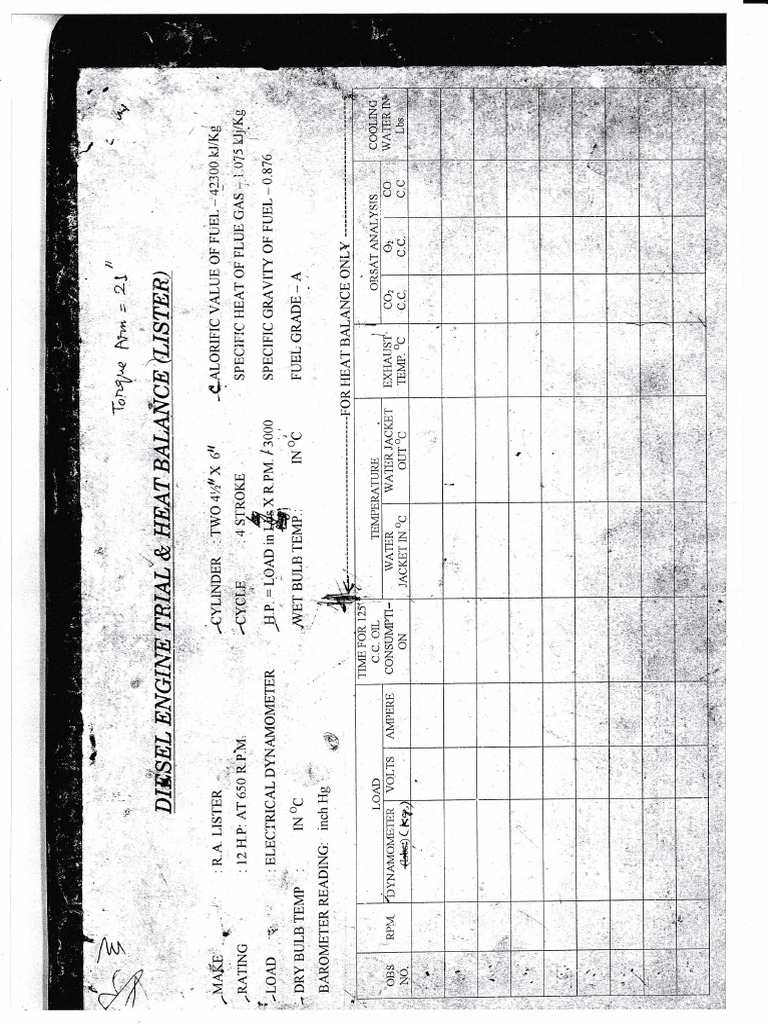 Torque Arm = 21"
DIESEL ENGINE TRIAL & HEAT BALANCE (LISTER)
MAKE : R.A. LISTER CYLINDER : TWO 4½" X 6" CALORIFIC VALUE OF FUEL – 42300 kJ/Kg
RATING : 12 H.P. AT 650 R.P.M. CYCLE : 4 STROKE SPECIFIC HEAT OF FLUE GAS – 1.075 kJ/Kg
LOAD : ELECTRICAL DYNAMOMETER H.P. = LOAD in Lbs X R.P.M. / 3000 SPECIFIC GRAVITY OF FUEL – 0.876
DRY BULB TEMP : IN °C WET BULB TEMP.: IN °C FUEL GRADE – A
BAROMETER READING: inch Hg
FOR HEAT BALANCE ONLY
OBS NO.
RPM.
LOAD
DYNAMOMETER
(Lbs) (Kg.)
VOLTS
AMPERE
TIME FOR 125
C.C. OIL
CONSUMPTI-
ON
TEMPERATURE
WATER
JACKET IN °C
WATER JACKET
OUT °C
EXHAUST
TEMP. °C
ORSAT ANALYSIS
CO₂
C.C.
O₂
C.C.
CO
C.C
COOLING
WATER IN
Lbs